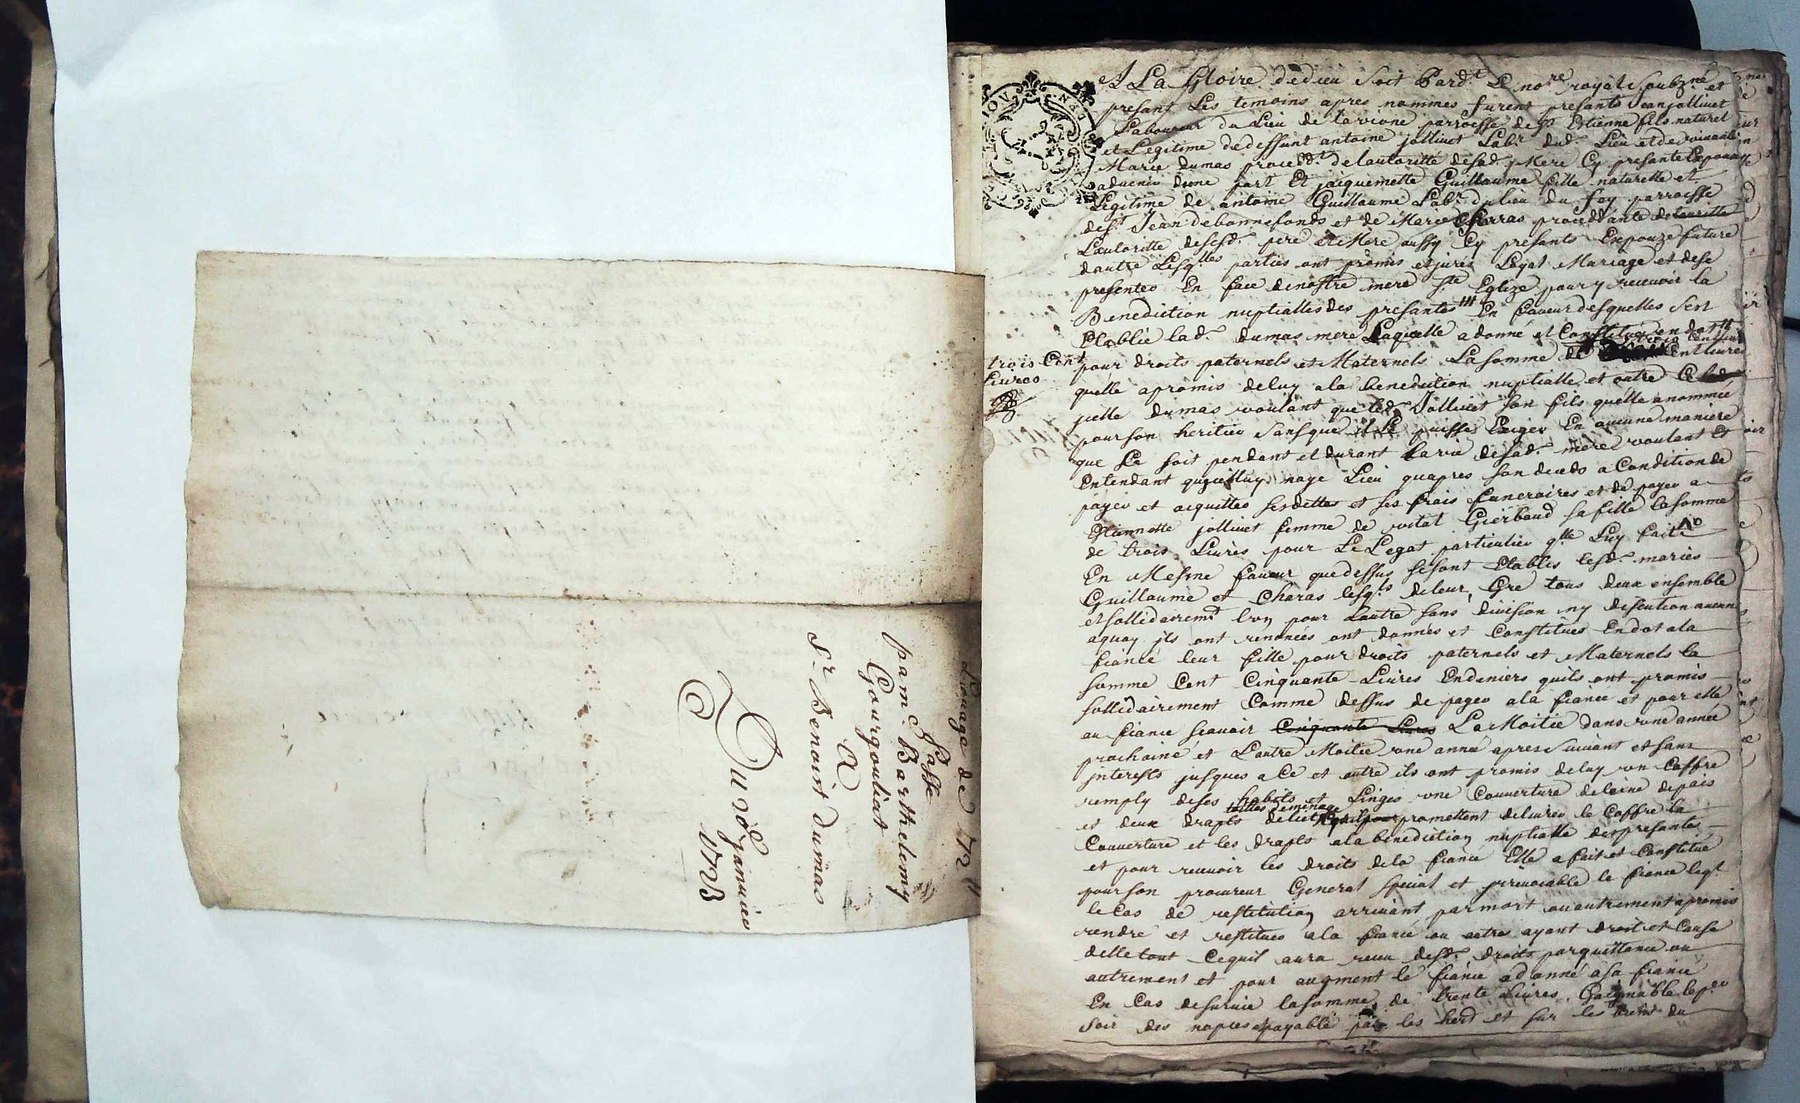 Louage de 72 ll
Passé
par mr Barthelemy
Gourgouliat
A
Sr Benoist dumas
Du vo Janvier
1723
A La Gloire de dieu soit Pard.t Le no.re royal soubz.né et
presant Les temoins apres nommes furent presants Jean jollivet
Laboureur du Lieu de parroisse de St Estienne fils naturel
et Legitime de deffunt antoine jollivet Lab.r dud. Lieu et de vivante
Marie dumas proced.t de Lautoritté de sad. Mere Cy presante
advenir dune part Et jacquemette Guillaume fille naturelle et
Legitime de antoine Guillaume Lab.r du lieu du fey parroisse
de St Jean de bonnefonds et de Marie Cheras procedante de
Lautoritte de sesd. pere et Mere aussy Cy presants Expouze future
dautre Lesq.lles parties ont promis et juré Loyal Mariage et de se
presenter En face de nostre mere Ste Eglize pour y recevoir la
Benediction nuptialle des presantes En faveur desquelles sest
Etablie lad. dumas mere Laquelle a donné et Constitué en dot
trois Cent
Livres
pour droits paternels et Maternels La somme de
quelle a promis de luy a la benediction nuptialle et outre
quelle dumas voulant que led. Jollivet son fils quelle a nommé
pour son heritier sans que il Le puisse Exiger En aucune maniere
que Ce soit pendant et durant la vie de sad. mere voulant Et
Entendant quiceluy naye Lieu quapres son deceds a Condition de
payer et acquitter ses dettes et ses frais funeraires et de payer a
jollivet femme de vital Gierbaud sa fille la somme
de trois Livres pour Le Legat particulier q.lle Luy fait
En Mesme faveur que dessus se sont Etablis lesd. maries
Guillaume et Cheras lesq.ls de leur Gre tous deux ensemble
et sollidairem.t lun pour Lautre sans division ny discution aucune
a quoy jls ont renoncés ont donnés et Constitués En dot a la
fiancé leur fille pour droits paternels et Maternels la
somme Cent Cinquante Livres En deniers quils ont promis
sollidairement Comme dessus de payer a la fiancé et pour elle
au fiance scavoir Cinquante Livres La Moitié dans une année
prochaine et Lautre Moitie une année apres suivant et sans
jnterests jusques a Ce et outre ils ont promis de luy un Coffre
remply de ses habits et Linges une Couverture de laine de pais
et deux drapts de promettent delivrer le Coffre la
Couverture et les drapts a la benediction nuptialle des presantes
et pour recevoir les droits de la fiancé Elle a fait et Constitué
pour son procureur General special et jrrevocable le fiance leq.l
le Cas de restitution arrivant par mort ou autrement a promis
rendre et restituer a la fiancé ou autres ayant droit et Cause
delle tout Cequil aura receu desd. droits par quittance ou
autrement et pour augment le fiance a donné a sa fiancé
En Cas de survie la somme de trente Livres Gaignable
soir des nopces payable par les herit et sur les biens du